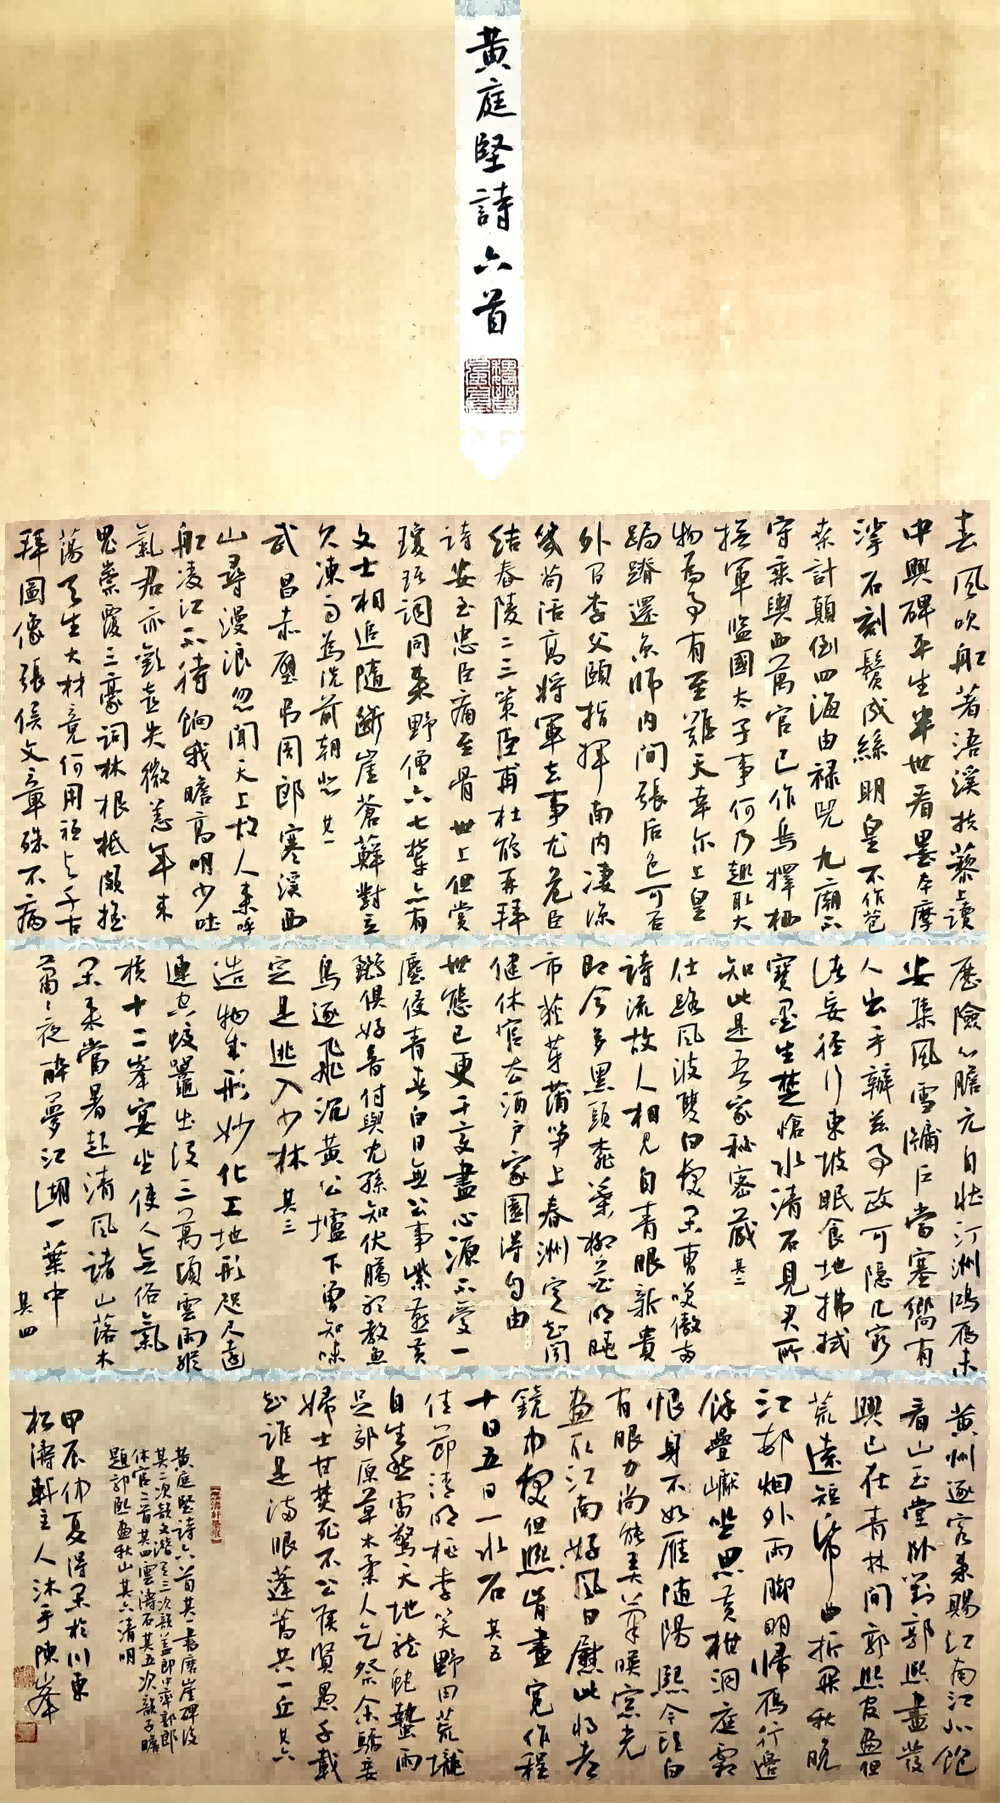 黄庭堅詩六首
春風吹船著浯溪扶藜上讀
中興碑平生半世看墨本摩
挲石刻鬢成絲明皇不作苞
桑計顛倒四海由禄兒九廟不
守乘輿西萬官已作烏擇栖
撫軍監國太子事何乃趣取大
物為事有至難天幸尔上皇
跼蹐還京師内間張后色可否
外間李父頤指揮南内凄凉
幾苟活高將軍去事尤危臣
結舂陵二三策臣甫杜鵑再拜
詩安知忠臣痛至骨世上但賞
瓊琚詞同来野僧六七輩亦有
文士相追隨斷崖蒼蘚對立
久凍雨為洗前朝悲 其一
武昌赤壁弔周郎寒溪西
山尋漫浪忽聞天上故人来呼
船凌江不待餉我瞻高明少吐
氣君亦歡喜失微恙年来
鬼祟覆三豪詞林根柢頗摇
蕩天生大材竟何用祇与千古
拜圖像張侯文章殊不病
歷險心膽元自壮汀洲鴻雁未
安集風雪牖户當塞嚮有
人出手辦兹事政可隱几窮
諸妄徑行東坡眠食地拂拭
寶墨生楚愴水清石見君所
知此是吾家秘密藏 其二
仕路風波雙白髮閑曹笑傲兩
詩流故人相見自青眼新貴
即今多黑頭桃葉柳花明曉
市荻芽蒲笋上春洲定知聞
健休官去酒户家園得自由
世態已更千变盡心源不受一
塵侵青春白日無公事紫燕黄
鸝俱好音付與兒孫知伏臘聊教魚
鳥逐飛沉黄公壚下曾知味
定是逃入少林 其三
造物成形妙化工地形咫尺遠
連空蛟鼉出没三萬頃雲雨縱
横十二峯宴坐使人無俗氣
閑来當暑起清風諸山落木
蕭蕭夜醉夢江湖一葉中
其四
黄州逐客未賜江南江北飽
看山玉堂卧對郭熙畫發
興已在青林間郭熙官畫但
荒遠短紙曲折開秋晚
江村烟外雨脚明歸雁行邊
餘疊巘坐思黄柑洞庭霜
恨身不如雁隨陽熙今頭白
有眼力尚能弄筆映窗光
畫取江南好風日慰此將老
鏡中髮但熙肯畫寬作程
十日五日一水石 其五
佳節清明桃李笑野田荒壠
自生愁雷驚天地龍蛇蟄雨
足郊原草木柔人乞祭余驕妾
婦士甘焚死不公侯賢愚千載
知誰是满眼蓬蒿共一丘 其六
黄庭堅詩六首其一書磨崖碑後
其二次韵文潜其三次韵盖郎中率郭郎
休官二首其四雲濤石其五次韵子瞻
題郭熙畫秋山其六清明
甲辰仲夏得閑於川東
松濤軒主人沐手陳峯